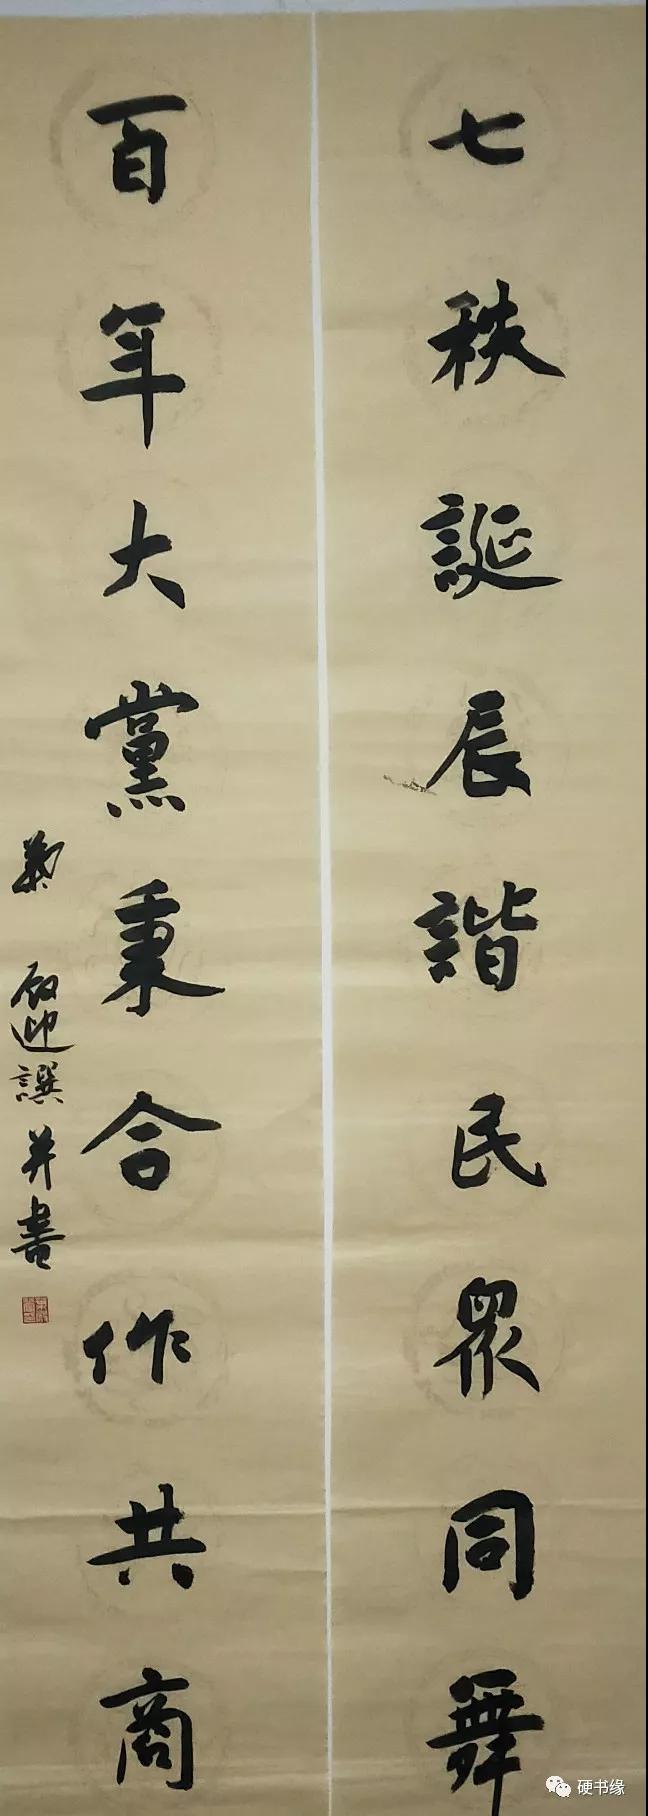 七秩誕辰諧民眾同舞
百年大黨秉合作共商
啟迎譔并書
硬书缘